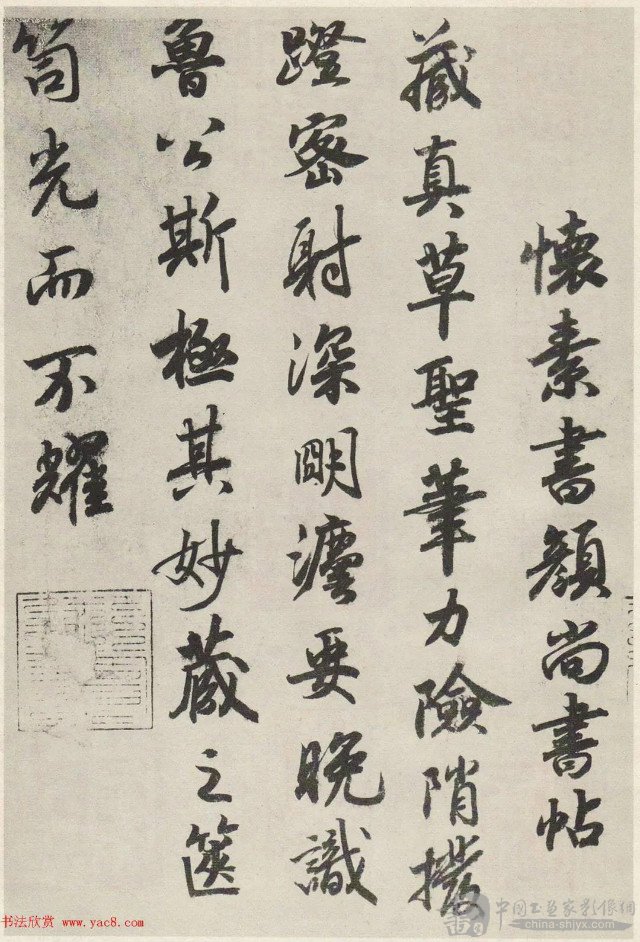 懷素書顏尚書帖
藏真草聖筆力險陗撥
蹬密射深明灋要晚識
魯公斯極其妙藏之篋
笥光而不耀
书法欣赏 www.yac8.com
中国书画家影像网
china-shjyx.com